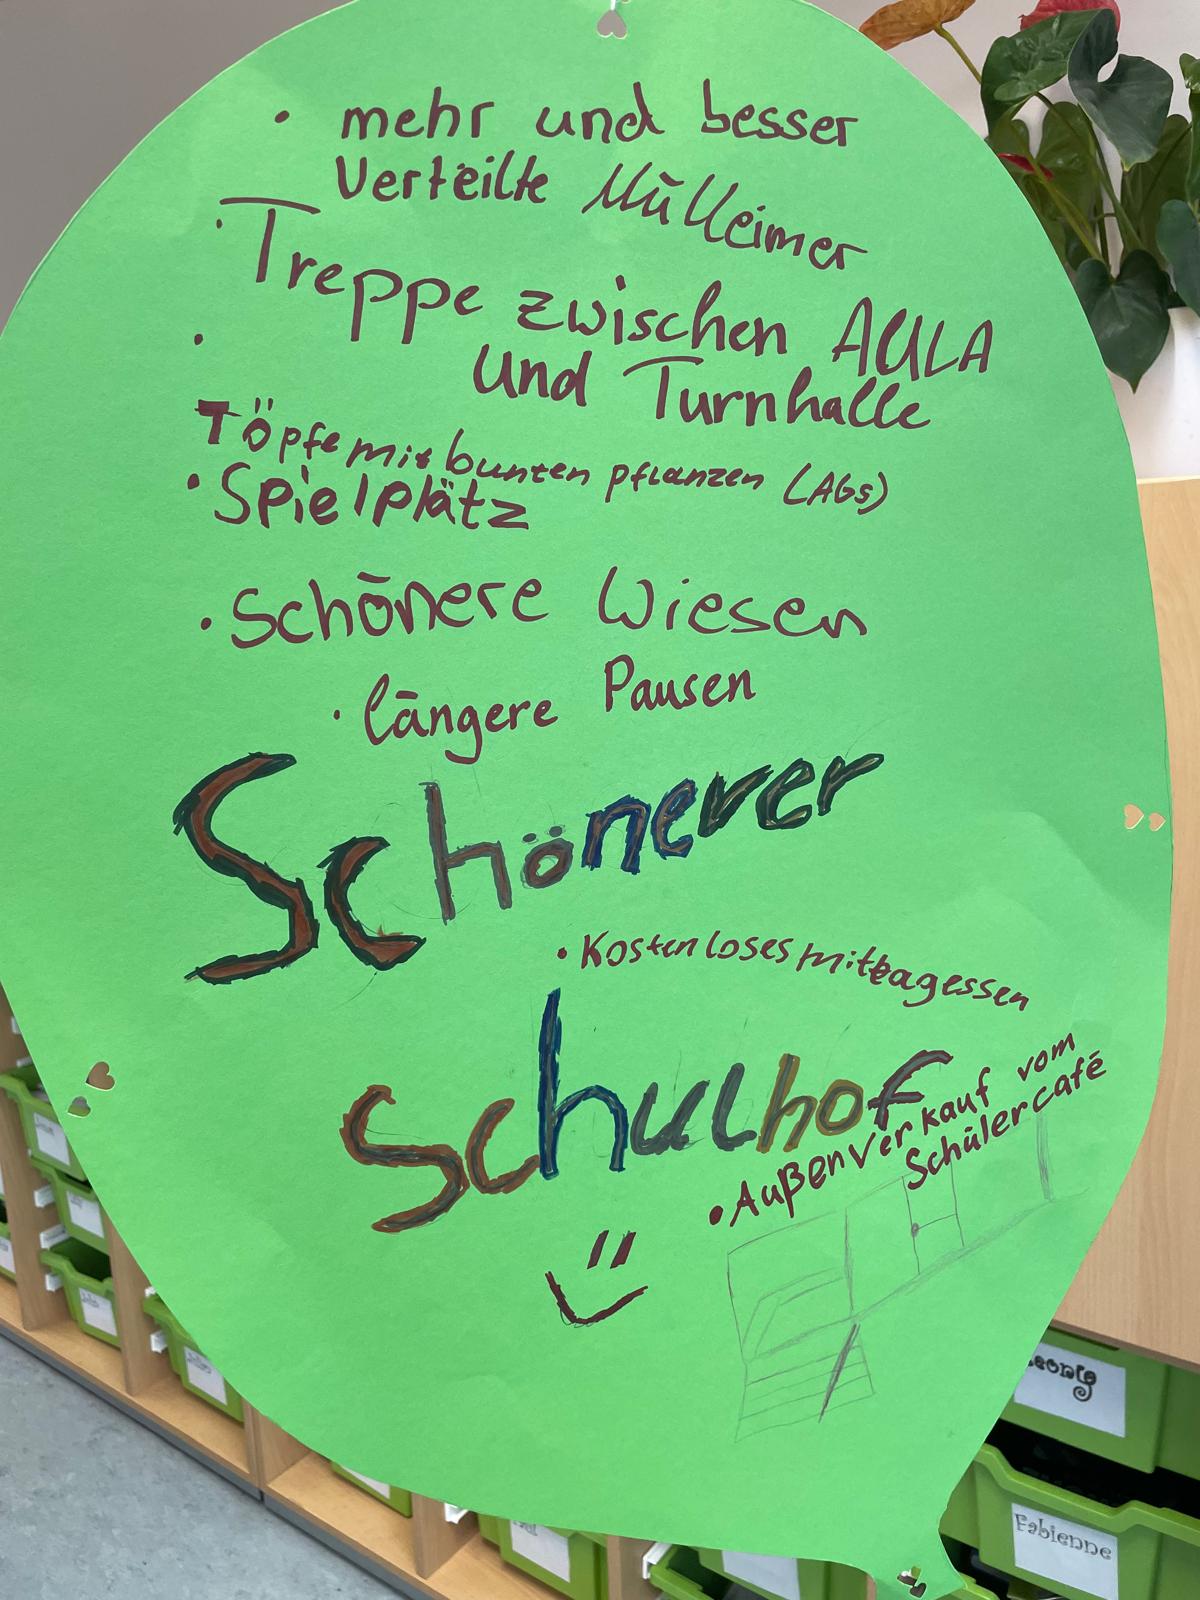 • mehr und besser
Verteilte Mülleimer
• Treppe zwischen AULA
und Turnhalle
•
Töpfe mit bunten pflanzen (AGs)
• Spielplätz
• Schönere Wiesen
• längere Pausen
Schönerer
• Kostenloses mittagessen
Schulhof
• Außenverkauf vom
Schülercafé
Fabienne